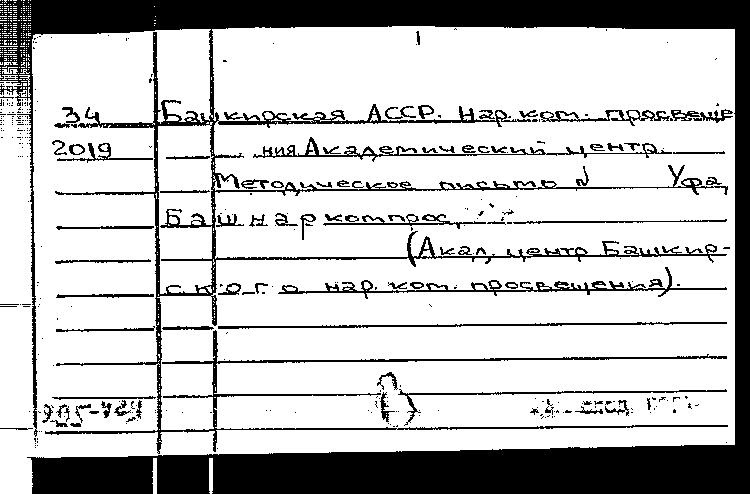 34 Башкирская АССР. Нар. ком. просвеще
2019 ния Академический центр.
Методическое письмо № Уфа,
Башнаркомпрос,
(Акад, центр Башкир-
ского нар. ком. просвещения).